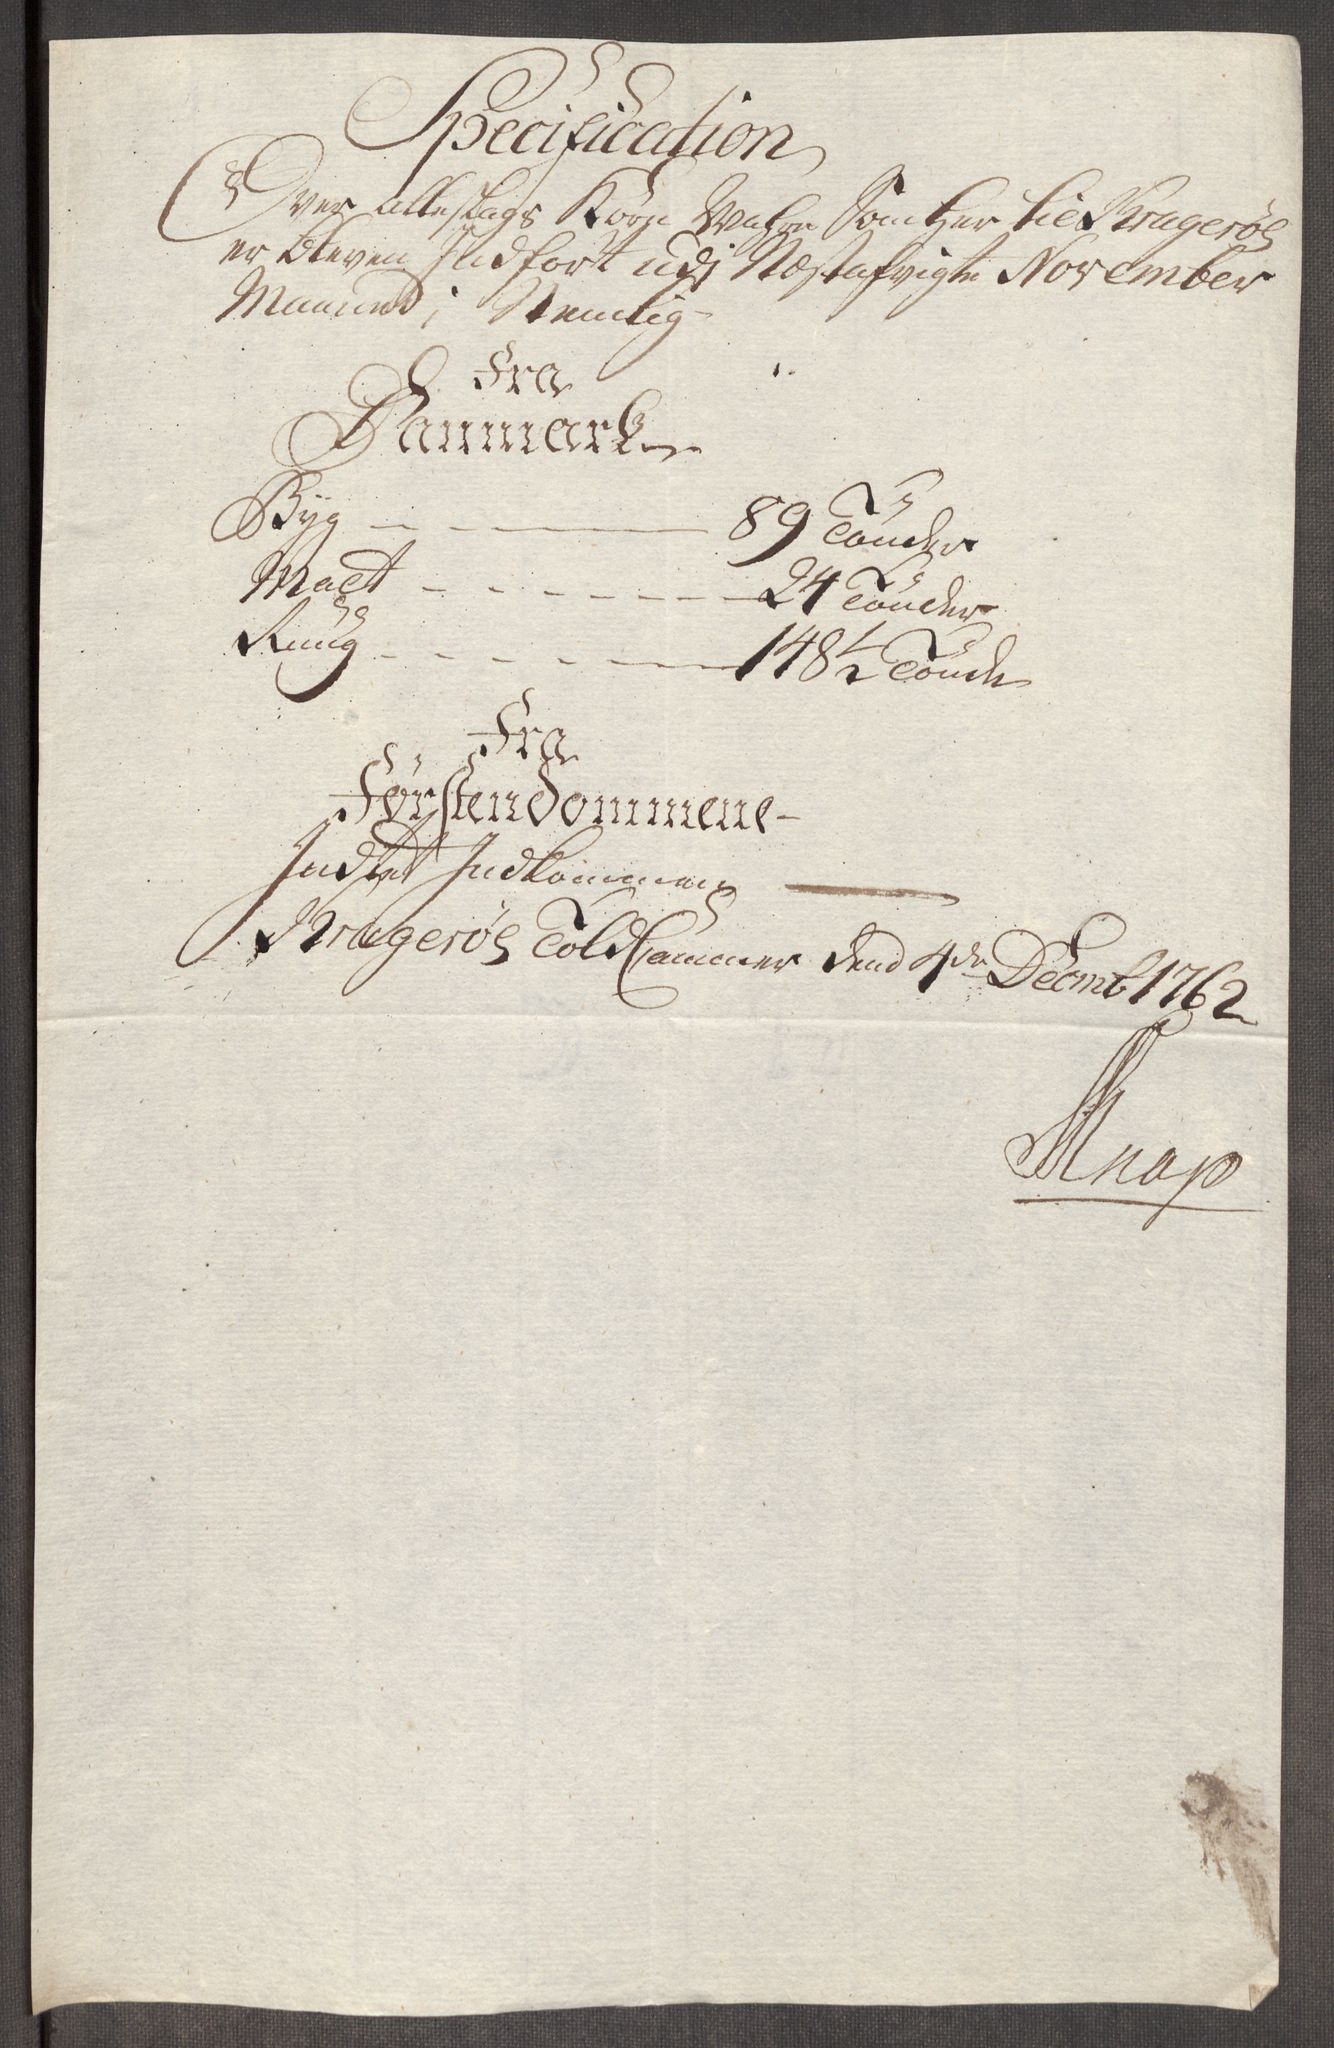 Specification
Over alleslags Korn Wahre Som her til Kragerøe
er bleven Indført udj Næstafvigte November
Maaned, Nemlig
Fra
Danmark
Byg 89 Tønder
Malt 24 Tønder
Ruug 148 1/2 Tønde
Fra
Førstendommene
Indtet Indkommen
Kragerøe Told Cammer dend 4de Decmb 1762
Knap